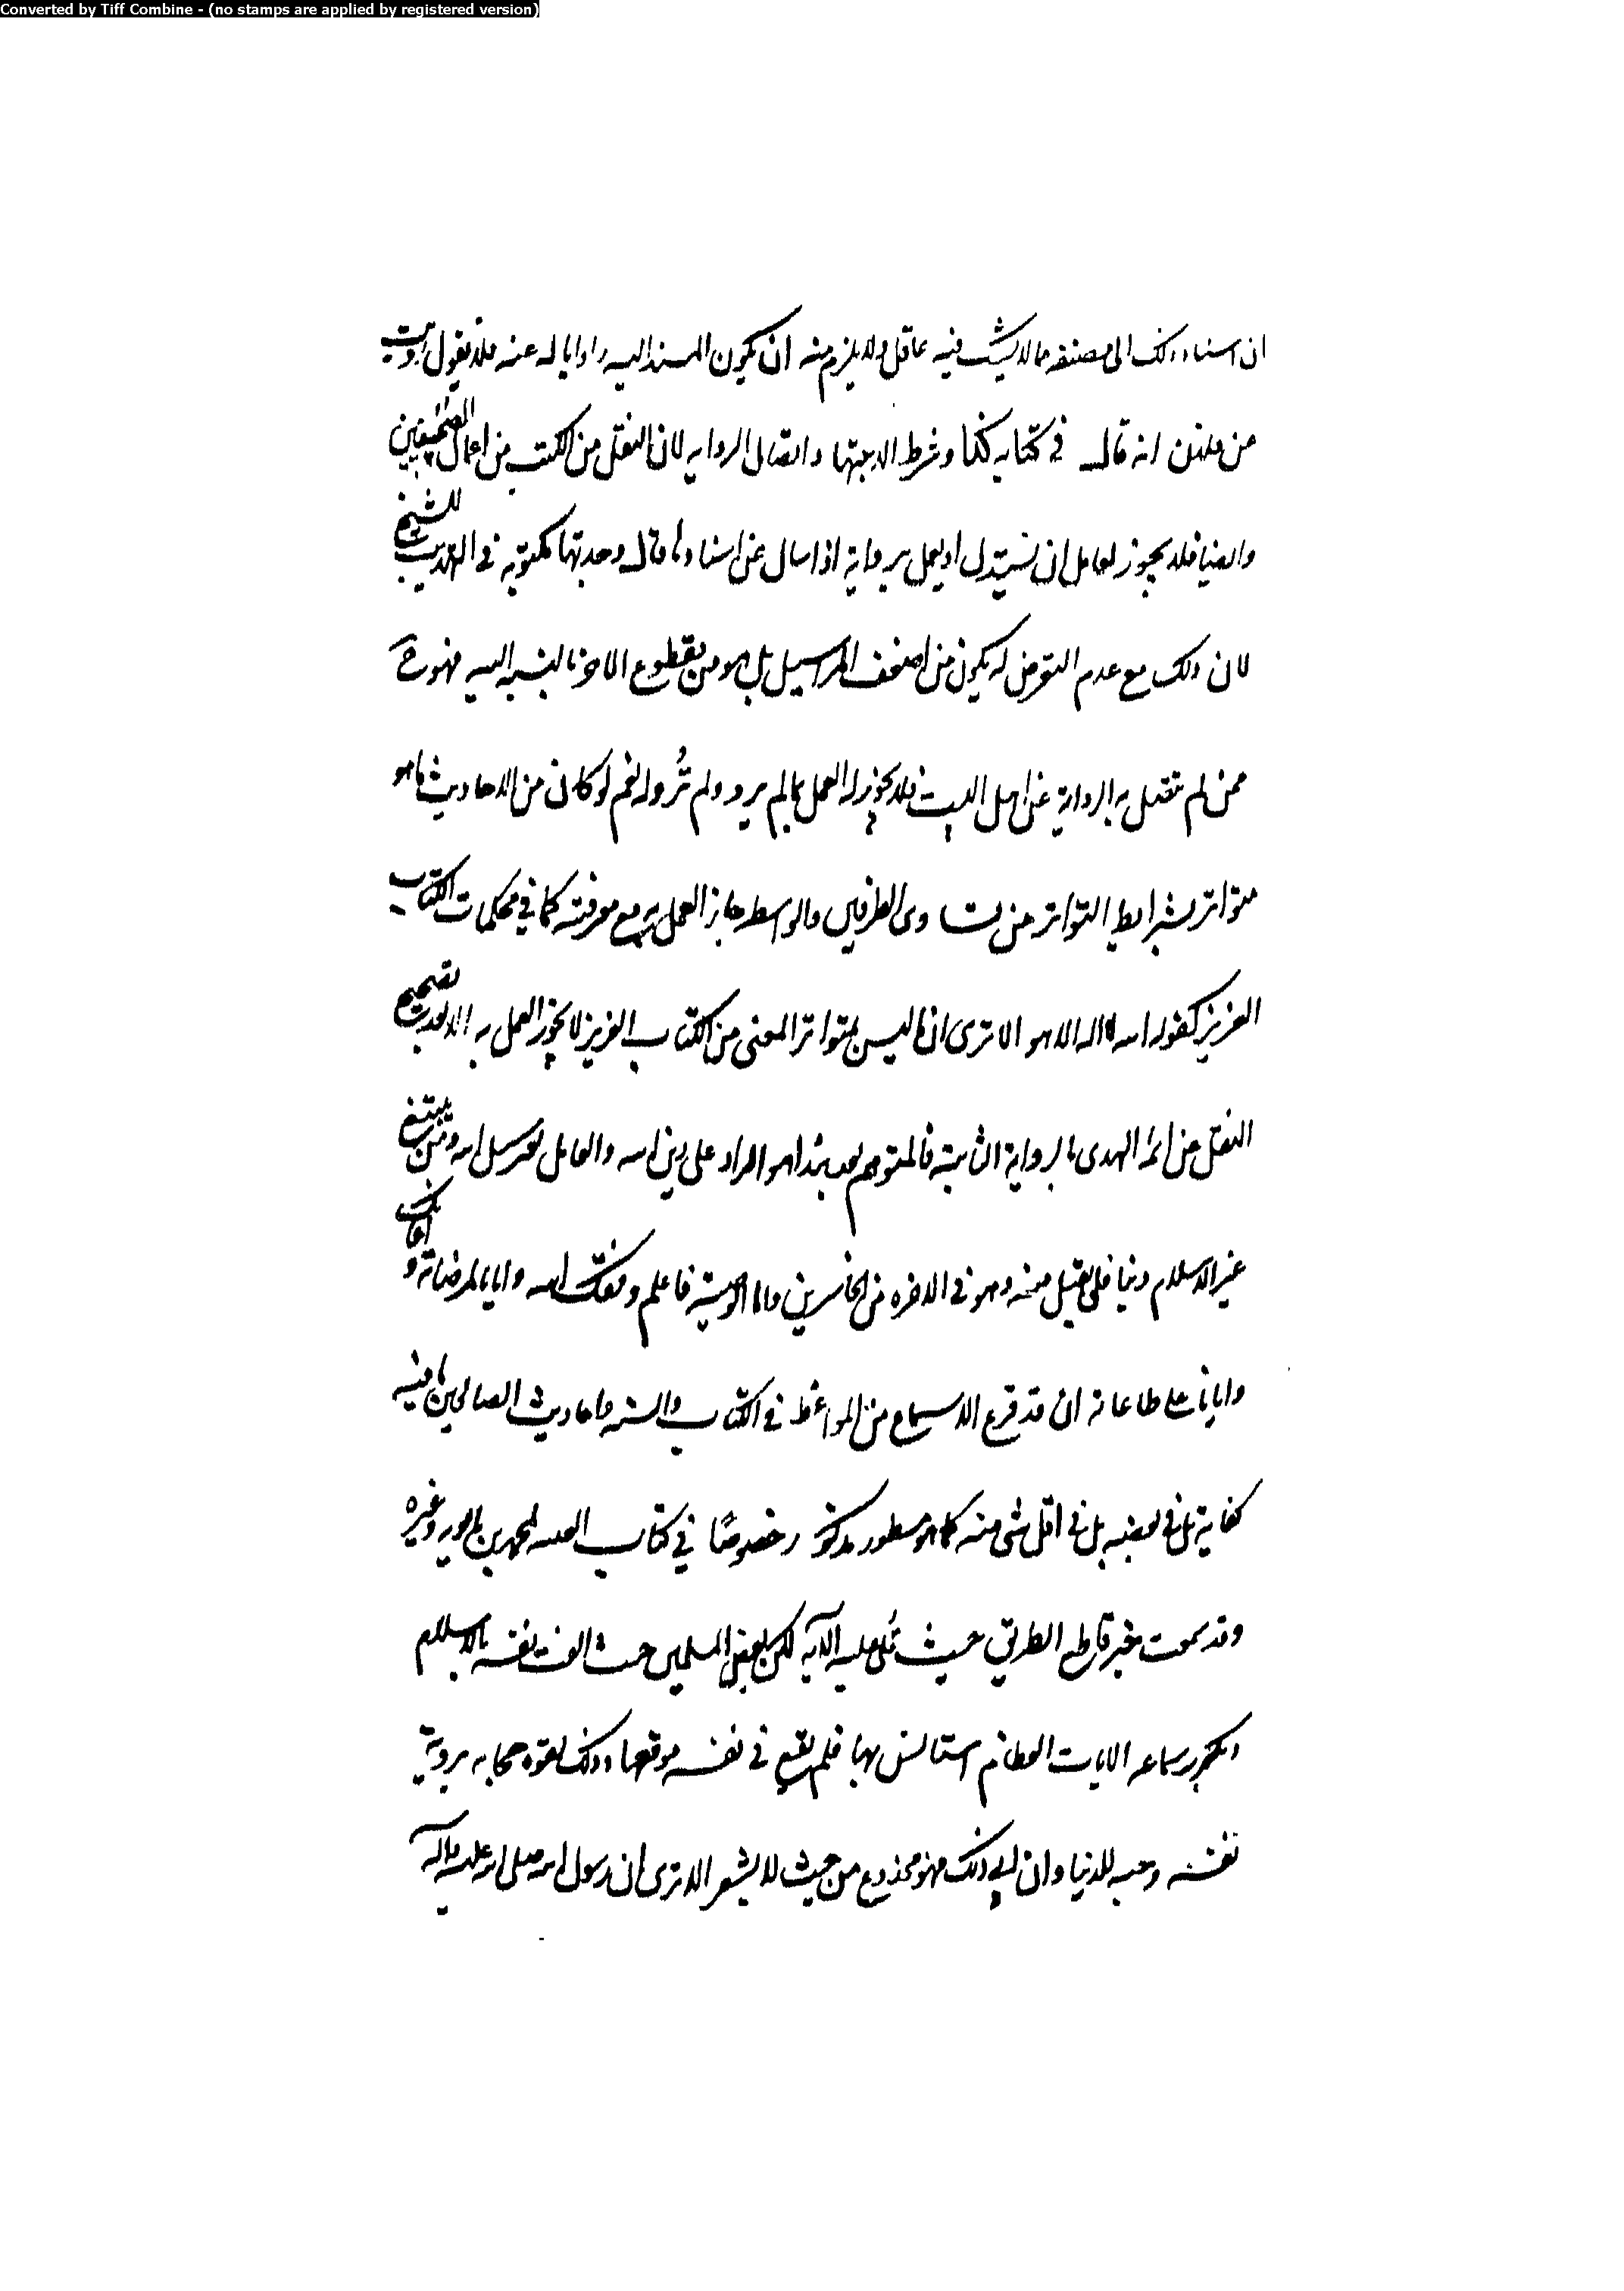 Converted by Tiff Combine - (no stamps are applied by registered version)
ان اسناد ذلك الى مصنفه مما لا يشك فيه عاقل ولا يلزم منه ان يكون المسند اليه راويا له عنه فلا يقول رويت
من فلان انه قال في كتابه كذا وشرط واتصال الروايه لان النقل من الكتب من اعمال الصحفيين
وايضا فلا يجوز لعامل ان يستدل او يعمل برواية اذا سال عن اسنادها قال وجدتها مكتوبه في التهذيب للشيخ
لان ذلك مع عدم التعرض له يكون من اضعف المراسيل بل هو من مقطوع الاخر بالنسبه اليه فهو ح
ممن لم تتصل به الرواية عن اهل البيت فلا يجوز له العمل بما لم يرو ولم تُرو له نعم لو كان من الاحاديث ما هو
متواتر بشرايط التواتر من تساوى الطرفين والواسطه جاز العمل به مع معرفته كما في محكمات الكتاب
العزيز كقوله الله لا اله الا هو الا ترى ان ما ليس بمتواتر المعنى من الكتاب العزيز لا يجوز العمل به الا بعد تصحيح
النقل عن ائمة الهدى بالرواية الثابتة فالمتوهم بعد هذا هو الراد على دين الله والعامل بغير سبيل الله ومن يبتغ
غير الاسلام دينا فلن يقبل منه وهو في الاخره من الخاسرين واما الوصية فاعلم وفقك الله وايانا لمرضاته و اعانك
وايانا على طاعاته ان قد قرع الاسماع من المواعظ في الكتاب والسنه واحاديث الصالحين ما فيه
كفاية بل في بعضه بل في اقل شى منه كما هو مسطور مذكور خصوصًا في كتاب لمحمد بن بابويه وغيره
وقد سمعت بخبر قاطع الطريق حيث تُلى عليه الآيه لكن بعض المسلمين حيث الفت نفسه بالاسلام
وتكرر سماعه الايات العظايم استانس بها فلم تقع في نفسه موقعها وذلك لقوة حجابه برؤية
نفسه وحبه للدنيا وان ابى ذلك فهو مخدوع من حيث لا يشعر الا ترى ان رسول الله صلى الله عليه وآله